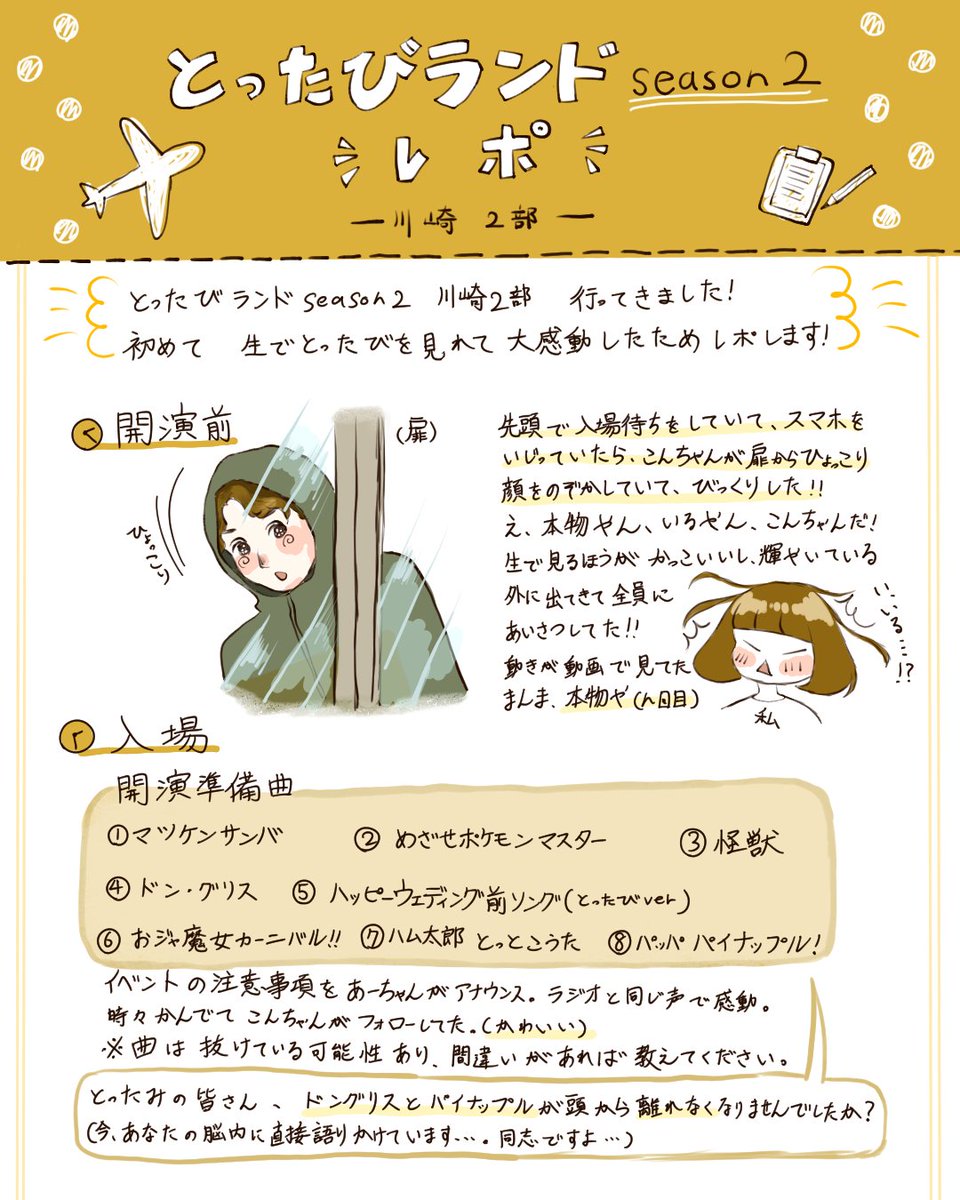 とったびランド season2
レポ
ー川崎 2部ー
とったびランドseason2 川崎2部 行ってきました!
初めて 生でとったびを見れて 大感動したためレポします!
開演前
(扉)
ひょっこり
先頭で入場待ちをしていて、スマホを
いじっていたら、こんちゃんが扉からひょっこり
顔をのぞかしていて、びっくりした!!
え、本物やん、いるやん、こんちゃんだ!
生で見るほうが かっこいいし、輝やいている
外に出てきて全員に
あいさつしてた!!
動きが動画で見てた
まんま、本物や(n回目)
い、いる…!?
私
入場
開演準備曲
①マツケンサンバ ②めざせポケモンマスター ③怪獣
④ドン・グリス ⑤ハッピーウェディング前ソング(とったびver)
⑥おジャ魔女カーニバル!! ⑦ハム太郎 とっとこうた ⑧パッパパイナップル!
イベントの注意事項をあーちゃんがアナウンス。ラジオと同じ声で感動。
時々かんでてこんちゃんがフォローしてた。(かわいい)
※曲は抜けている可能性あり、間違いがあれば教えてください。
とったみの皆さん、ドングリスとパイナップルが頭から離れなくなりませんでしたか?
(今、あなたの脳内に直接語りかけています…。同志ですよ…)